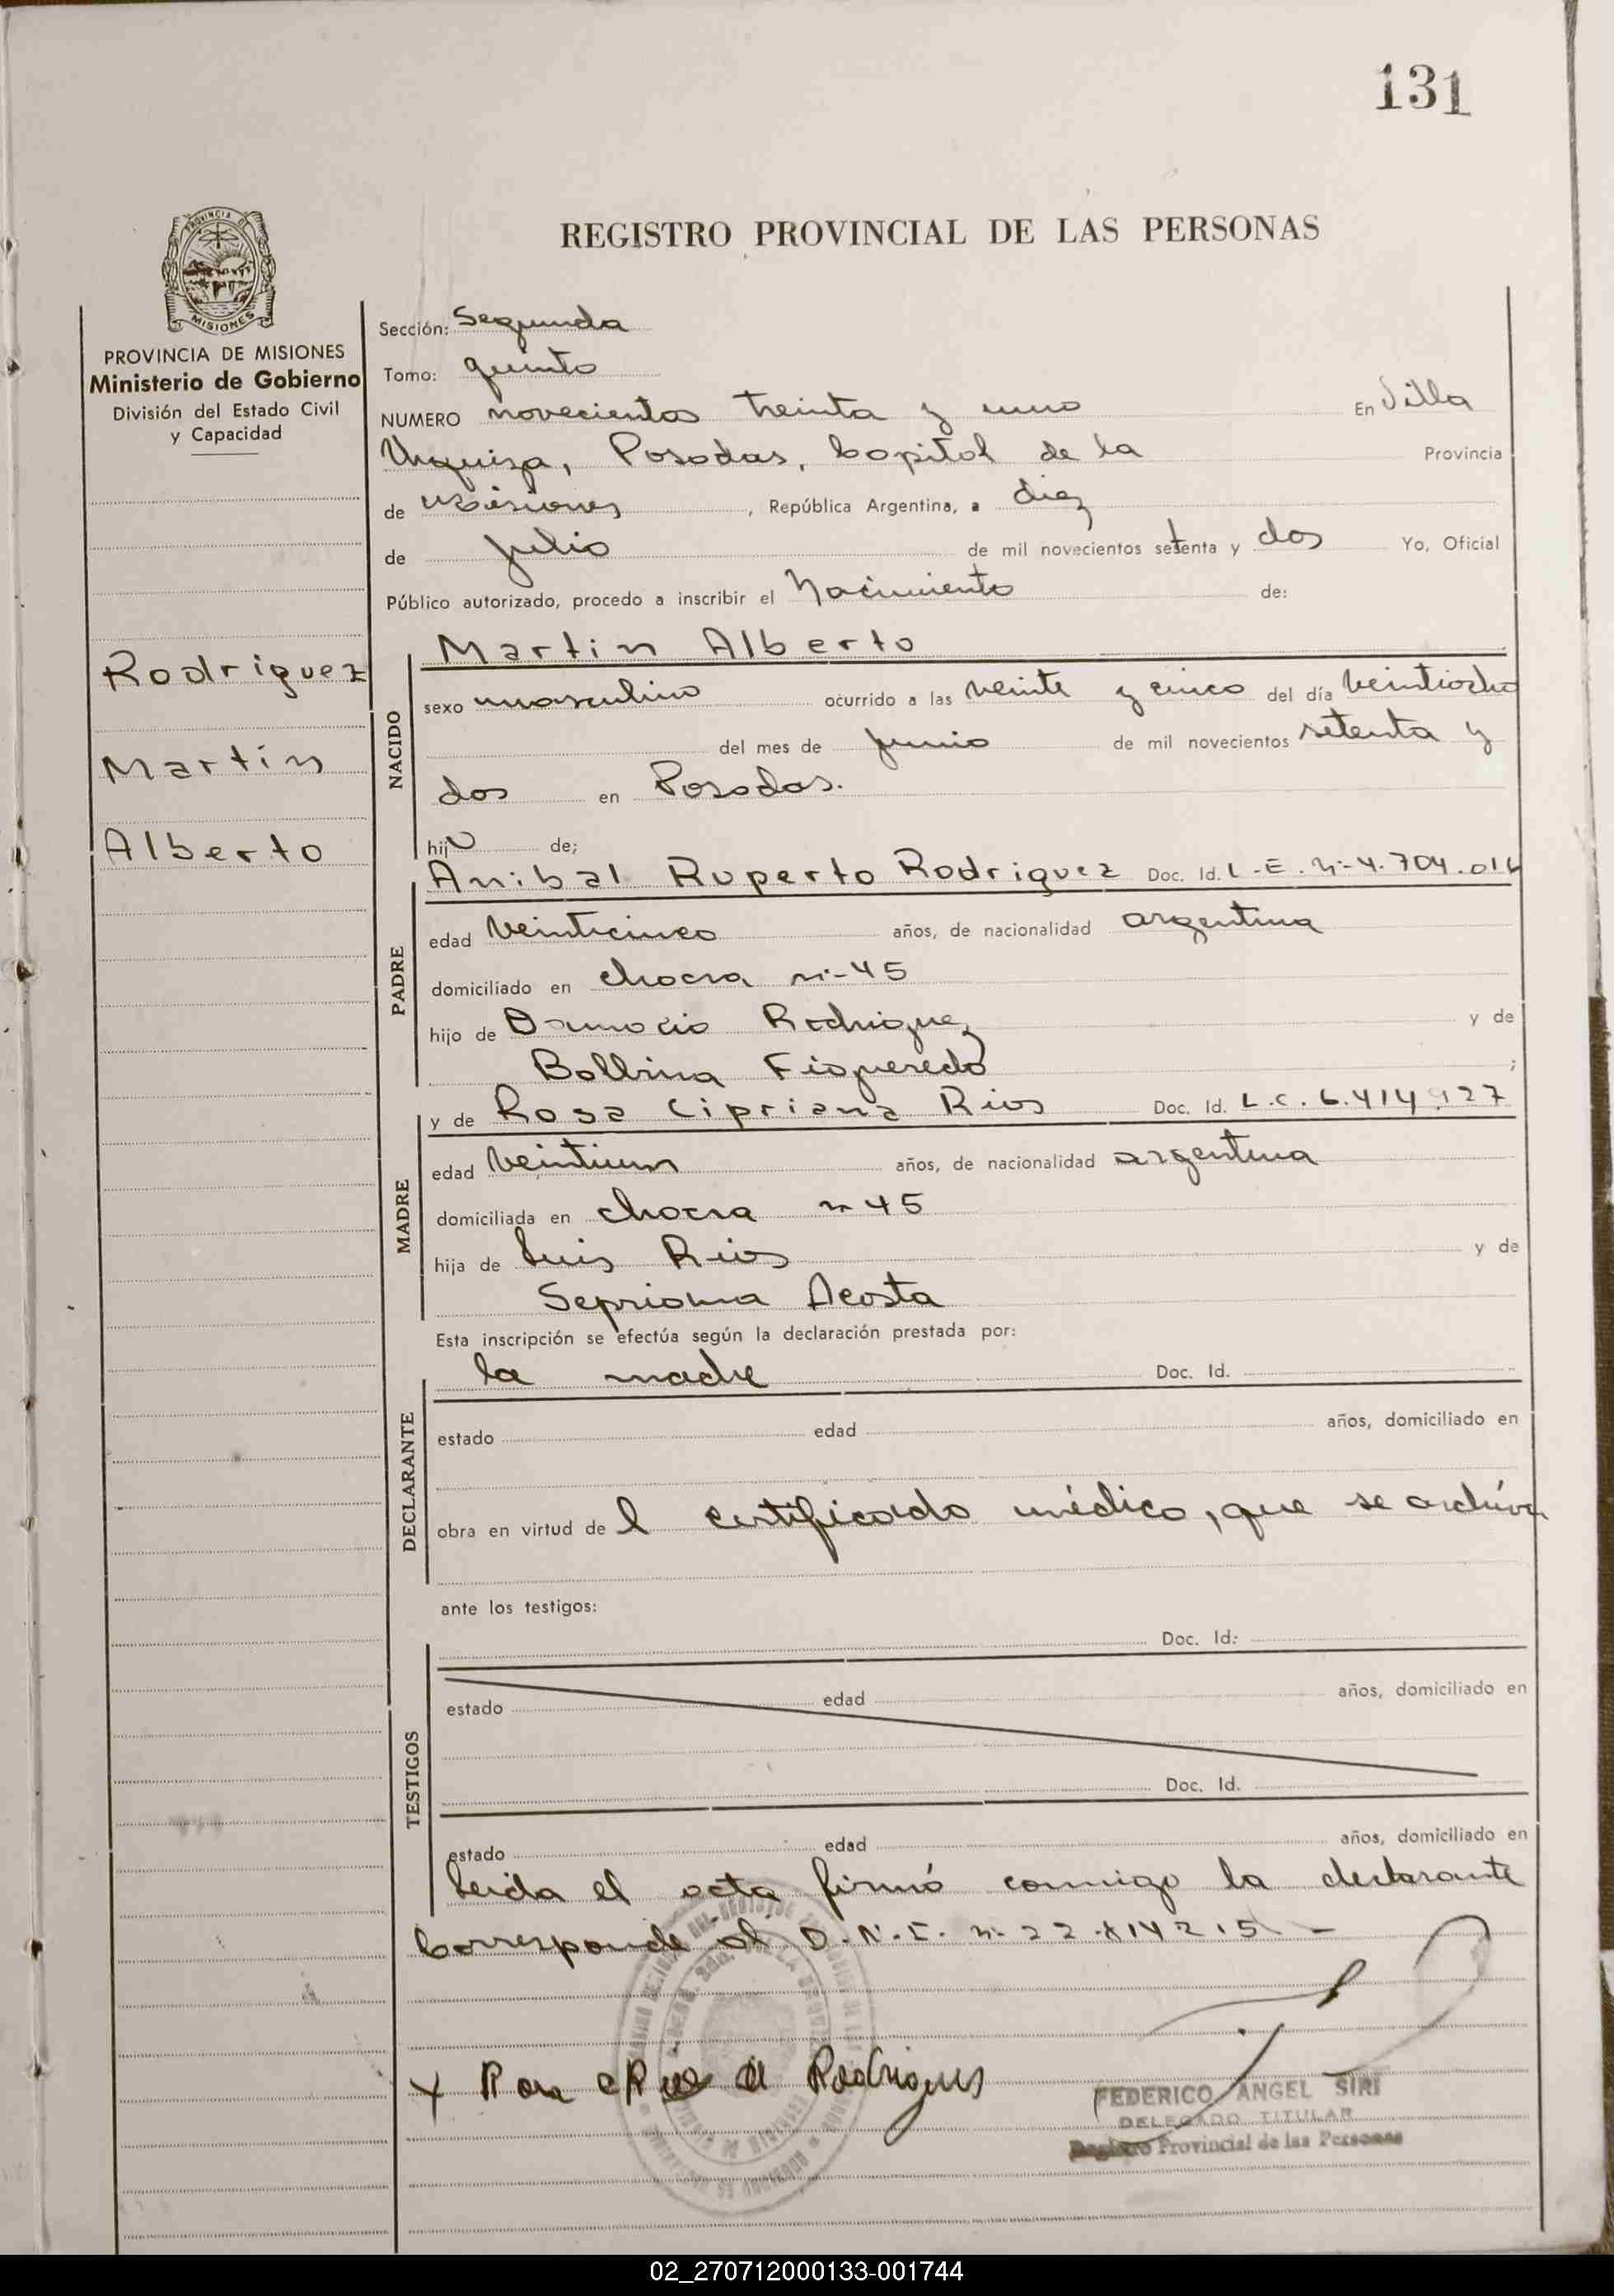 131
REGISTRO PROVINCIAL DE LAS PERSONAS
PROVINCIA DE MISIONES
Ministerio de Gobierno
División del Estado Civil
y Capacidad
Rodriguez
Martin
Alberto
Sección: Segunda
Tomo: quinto
NUMERO novecientos treinta y uno En Villa
Urquiza, Posadas, Capital de la Provincia
de Misiones, República Argentina, a diez
de julio de mil novecientos setenta y dos Yo, Oficial
Público autorizado, procedo a inscribir el Nacimiento de:
Martin Alberto
NACIDO
sexo masculino ocurrido a las veinte y cinco del día veintiocho
del mes de junio de mil novecientos setenta y
dos en Posadas.
hijo de;
Anibal Ruperto Rodriguez Doc. Id. L.E. nº 4.704.016
PADRE
edad veinticinco años, de nacionalidad argentina
domiciliado en chacra nº 45
hijo de Rodriguez y de
Balbina Figueredo;
y de Rosa Cipriana Rios Doc. Id. L.C. 6.414.927
MADRE
edad veintiun años, de nacionalidad argentina
domiciliada en chacra nº 45
hija de Luis Rios y de
Sepriana Acosta
Esta inscripción se efectúa según la declaración prestada por:
la madre Doc. Id.
DECLARANTE
estado edad años, domiciliado en
obra en virtud del certificado médico, que se archiva
ante los testigos:
Doc. Id:
TESTIGOS
estado edad años, domiciliado en
Doc. Id.
estado edad años, domiciliado en
Leida el acta firmó conmigo la declarante
Corresponde al D.N.I. nº
x Rosa C Rios de Rodrigues
FEDERICO ANGEL SIRI
DELEGADO TITULAR
Registro Provincial de las Personas
02_270712000133-001744